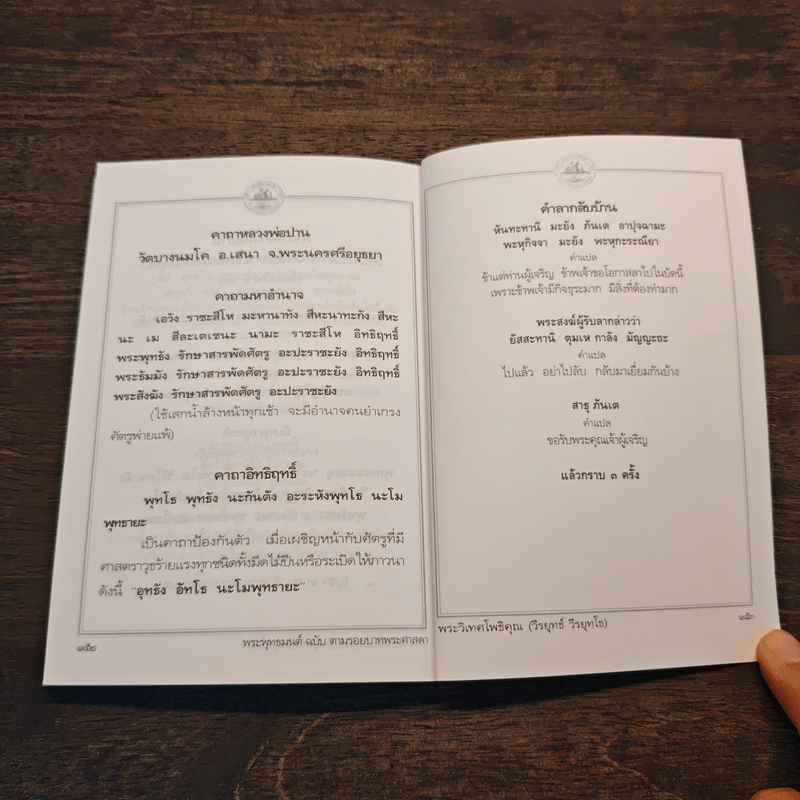 คาถาหลวงพ่อปาน
วัดบางนมโค อ.เสนา จ.พระนครศรีอยุธยา
คาถามหาอำนาจ
เอวัง ราชะสีโห มะหานาทัง สีหะนาทะกัง สีหะ
นะ เม สีละเตเชนะ นามะ ราชะสีโห อิทธิฤทธิ์
พระพุทธัง รักษาสารพัดศัตรู อะปะราชะยัง อิทธิฤทธิ์
พระธัมมัง รักษาสารพัดศัตรู อะปะราชะยัง อิทธิฤทธิ์
พระสังฆัง รักษาสารพัดศัตรู อะปะราชะยัง
(ใช้เสกน้ำล้างหน้าทุกเช้า จะมีอำนาจคนยำเกรง
ศัตรูพ่ายแพ้)
คาถาอิทธิฤทธิ์
พุทโธ พุทธัง นะกันตัง อะระหังพุทโธ นะโม
พุทธายะ
เป็นคาถาป้องกันตัว เมื่อเผชิญหน้ากับศัตรูที่มี
ศาสตราวุธร้ายแรงทุกชนิดทั้งมีดไม้ปืนหรือระเบิดให้ภาวนา
ดังนี้ "อุทธัง อัทโธ นะโมพุทธายะ"
๑๕๒
พระพุทธมนต์ ฉบับ ตามรอยบาทพระศาสดา
คำลากลับบ้าน
หันทะทานิ มะยัง ภันเต อาปุจฉามะ
พะหุกิจจา มะยัง พะหุกะระณียา
คำแปล
ข้าแต่ท่านผู้เจริญ ข้าพเจ้าขอโอกาสลาไปในบัดนี้
เพราะข้าพเจ้ามีกิจธุระมาก มีสิ่งที่ต้องทำมาก
พระสงฆ์ผู้รับลากล่าวว่า
ยัสสะทานิ ตุมเห กาลัง มัญญะถะ
คำแปล
ไปแล้ว อย่าไปลับ กลับมาเยี่ยมกันบ้าง
สาธุ ภันเต
คำแปล
ขอรับพระคุณเจ้าผู้เจริญ
แล้วกราบ ๓ ครั้ง
๑๕๓
พระวิเทศโพธิคุณ (วีรยุทธ์ วีรยุทโธ)